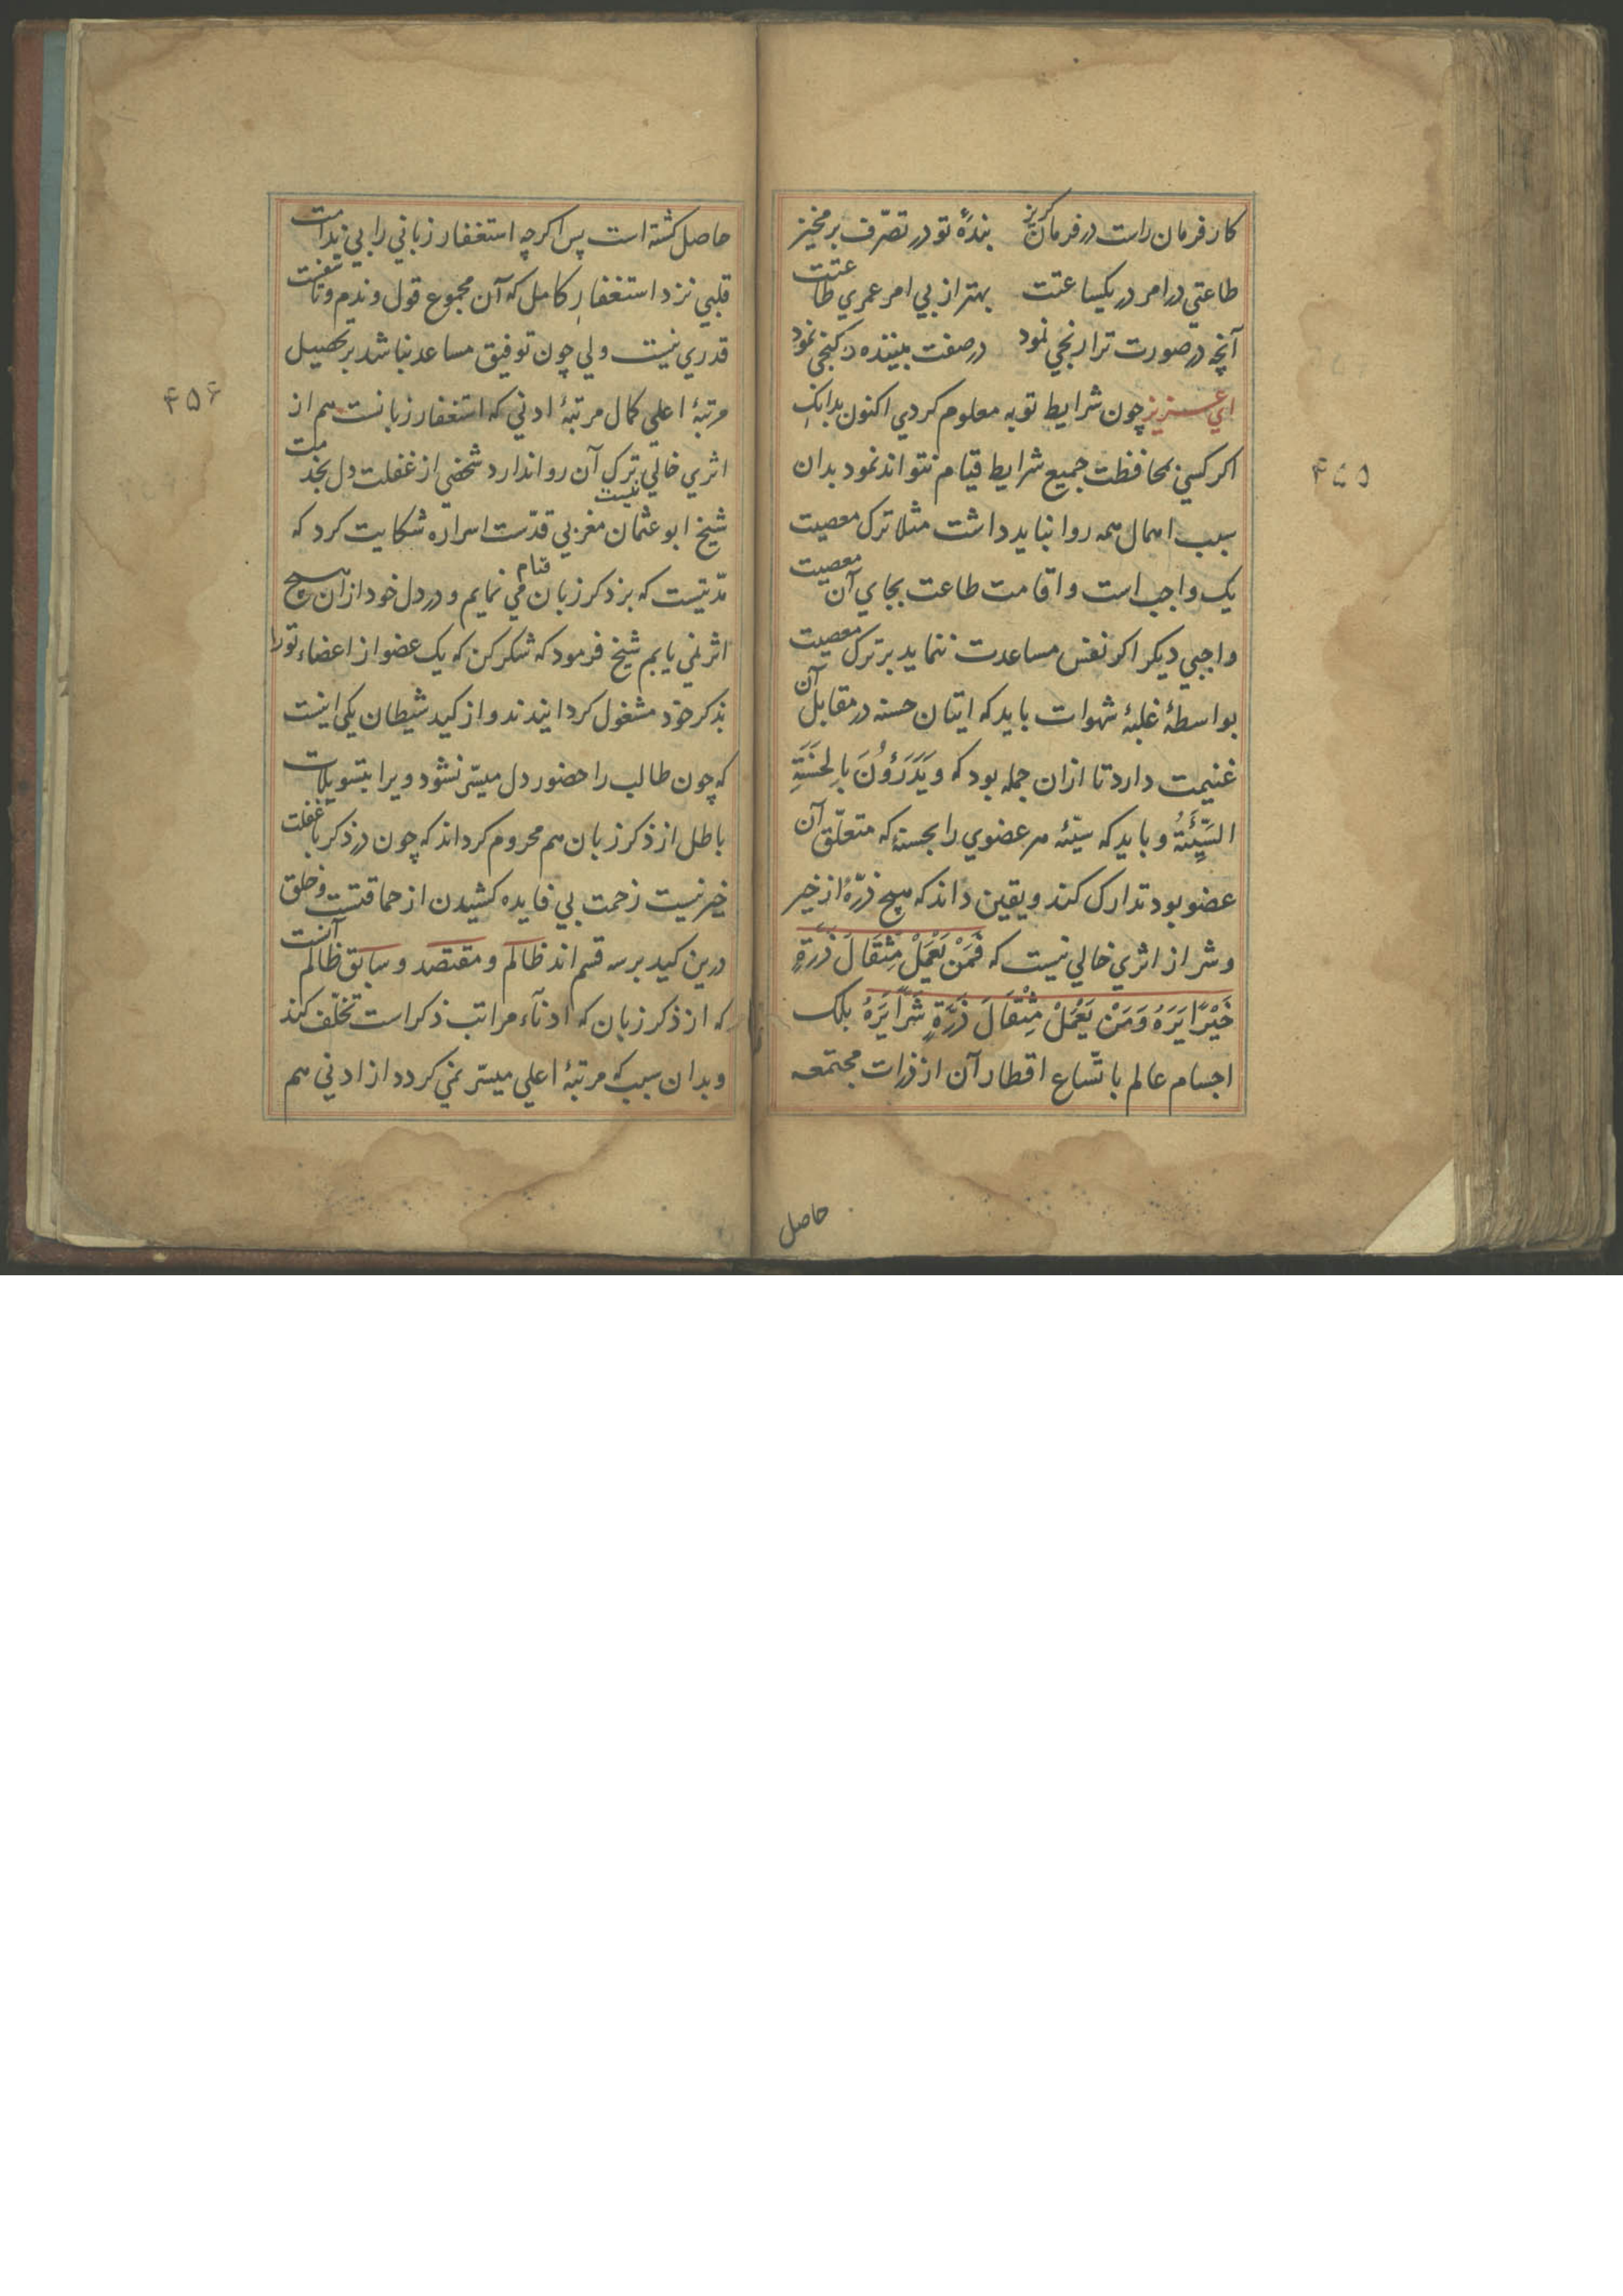 کار فرمان راست در فرمان گریز بندهٔ تو در تصرّف بر مخیز
طاعتي در امر در یکساعتت بهتر از بي امر عمري طاعتت
آنچه در صورت ترا رنجي نمود در صفت بیننده را گنجي نمود
اي عزیز چون شرایط توبه معلوم کردي اکنون بدانک
اکر کسي بمحافظت جمیع شرایط قیام نتواند نمود بدان
سبب اهمال همه روا نباید داشت مثلا ترک معصیت
یک واجب است و اقامت طاعت بجاي آن معصیت
واجبي دیکر اکر نفس مساعدت ننماید بر ترک معصیت
بواسطهٔ غلبهٔ شهوات باید که اتیان حسنه در مقابل آن
غنیمت دارد تا ازان جمله بود که وَیَدْرَؤُنَ بِالْحَسَنَةِ
السَّیِّئَةَ و باید که سیّئه هر عضوي را بحسنهٔ که متعلّق آن
عضو بود تدارک کند و یقین داند که هیچ ذرّهٔ از خیر
و شر از اثري خالي نیست که فَمَنْ یَعْمَلْ مِثْقَالَ ذَرَّةٍ
خَیْرًا یَرَهُ وَمَنْ یَعْمَلْ مِثْقَالَ ذَرَّةٍ شَرًّا یَرَهُ بلک
اجسام عالم باتّساع اقطار آن از ذرات مجتمعه
حاصل
۴۵۵
حاصل کشته است پس اکرچه استغفار زباني را بي ندامت
قلبي نزد استغفارِ کامل که آن مجموع قول و ندم و تاسفست
قدري نیست ولي چون توفیق مساعد نباشد بر تحصیل
مرتبهٔ اعلي کمال مرتبهٔ ادني که استغفار زبانست هم از
اثري خالي نیست ترک آن روا ندارد شخصي از غفلت دل بخدمت
شیخ ابو عثمان مغربي قدّست اسراره شکایت کرد که
مدّتیست که بذکر زبان قیام مي نمایم و در دل خود ازان هیچ
اثر نمي یابم شیخ فرمود که شکر کن که یک عضو از اعضاء تو را
بذکر خود مشغول کردانیدند و از کید شیطان یکي اینست
که چون طالب را حضور دل میسّر نشود ویرا بتسویلات
باطل از ذکر زبان هم محروم کرداند که چون در ذکر با غفلت
خیر نیست زحمت بي فایده کشیدن از حماقتست و خلق
درین کید بر سه قسم اند ظالم و مقتصد و سابق ظالم آنست
که از ذکر زبان که ادنآء مراتب ذکر است تخلّف کند
و بدان سبب که مرتبهٔ اعلي میسّر نمي کردد از ادني هم
۴۵۶